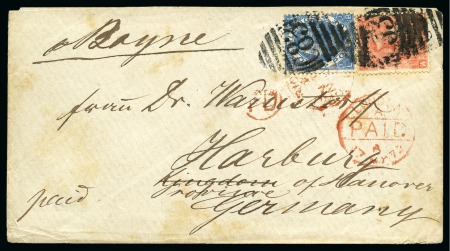 p Boyne
Frau Dr. Warnstorff
Harburg
Kingdom of Hanover
Province
paid
Germany
PAID